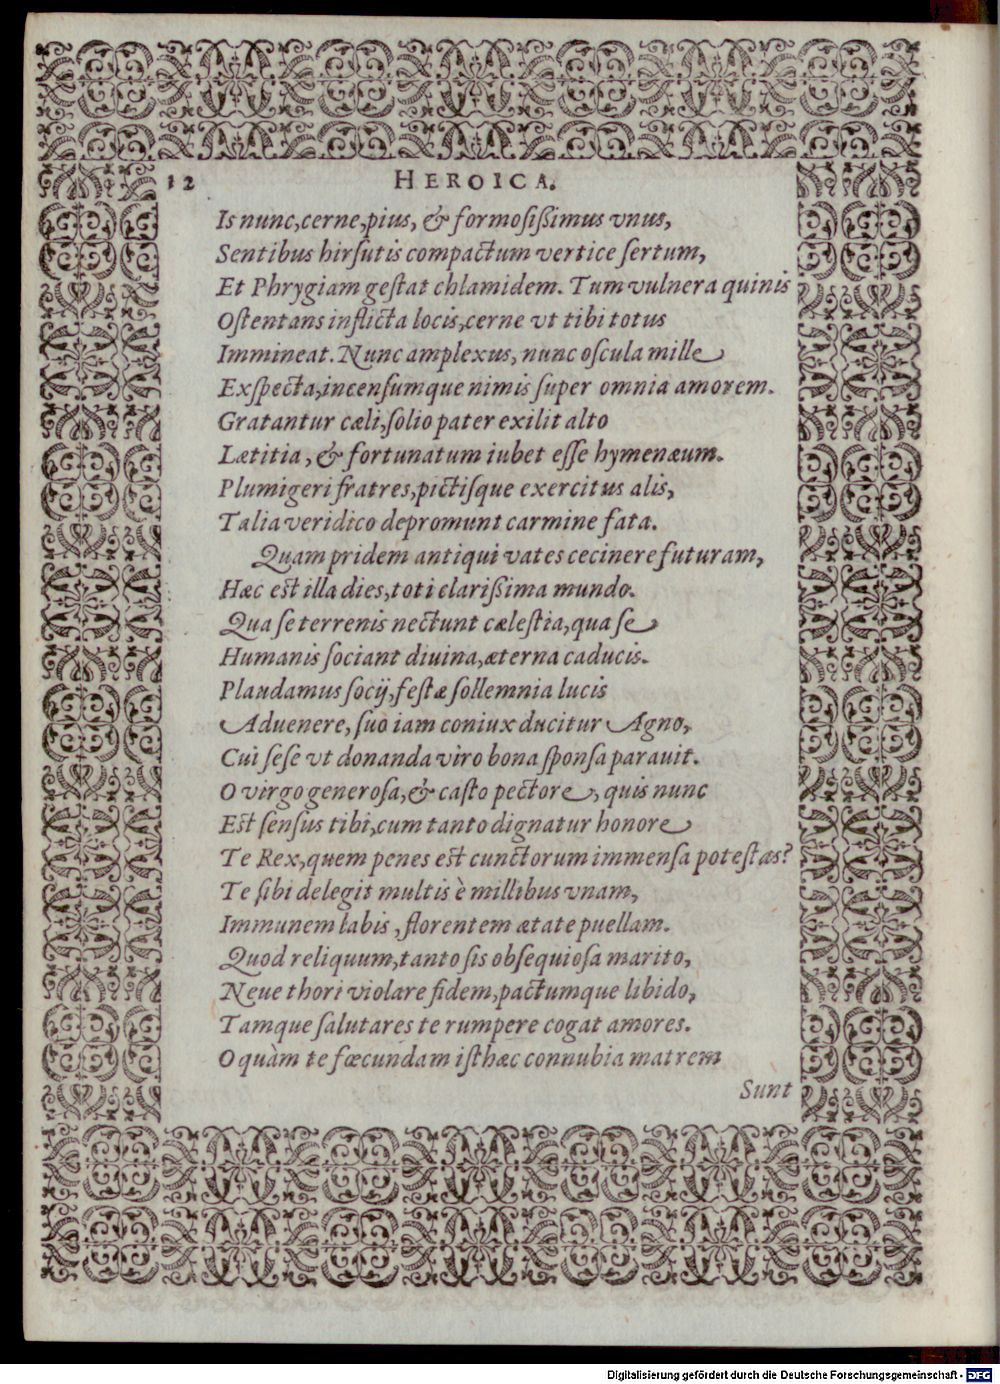 12 HEROICA.
Is nunc, cerne, pius, & formosißimus vnus,
Sentibus hirsutis compactum vertice sertum,
Et Phrygiam gestat chlamidem. Tum vulnera quinis
Ostentans inflicta locis, cerne vt tibi totus
Immineat. Nunc amplexus, nunc oscula mille
Exspecta, incensumque nimis super omnia amorem.
Gratantur cæli, solio pater exilit alto
Lætitia, & fortunatum iubet esse hymenæum.
Plumigeri fratres, pictisque exercitus alis,
Talia veridico depromunt carmine fata.
Quam pridem antiqui vates cecinere futuram,
Hæc est illa dies, toti clarißima mundo.
Qua se terrenis nectunt cælestia, qua se
Humanis sociant diuina, æterna caducis.
Plaudamus socij, festæ sollemnia lucis
Aduenere, suo iam coniux ducitur Agno,
Cui sese vt donanda viro bona sponsa parauit.
O virgo generosa, & casto pectore, quis nunc
Est sensus tibi, cum tanto dignatur honore
Te Rex, quem penes est cunctorum immensa potestas?
Te sibi delegit multis è millibus vnam,
Immunem labis, florentem ætate puellam.
Quod reliquum, tanto sis obsequiosa marito,
Neue thori violare fidem, pactumque libido,
Tamque salutares te rumpere cogat amores.
O quàm te fœcundam isthæc connubia matrem
Sunt
Digitalisierung gefördert durch die Deutsche Forschungsgemeinschaft - DFG